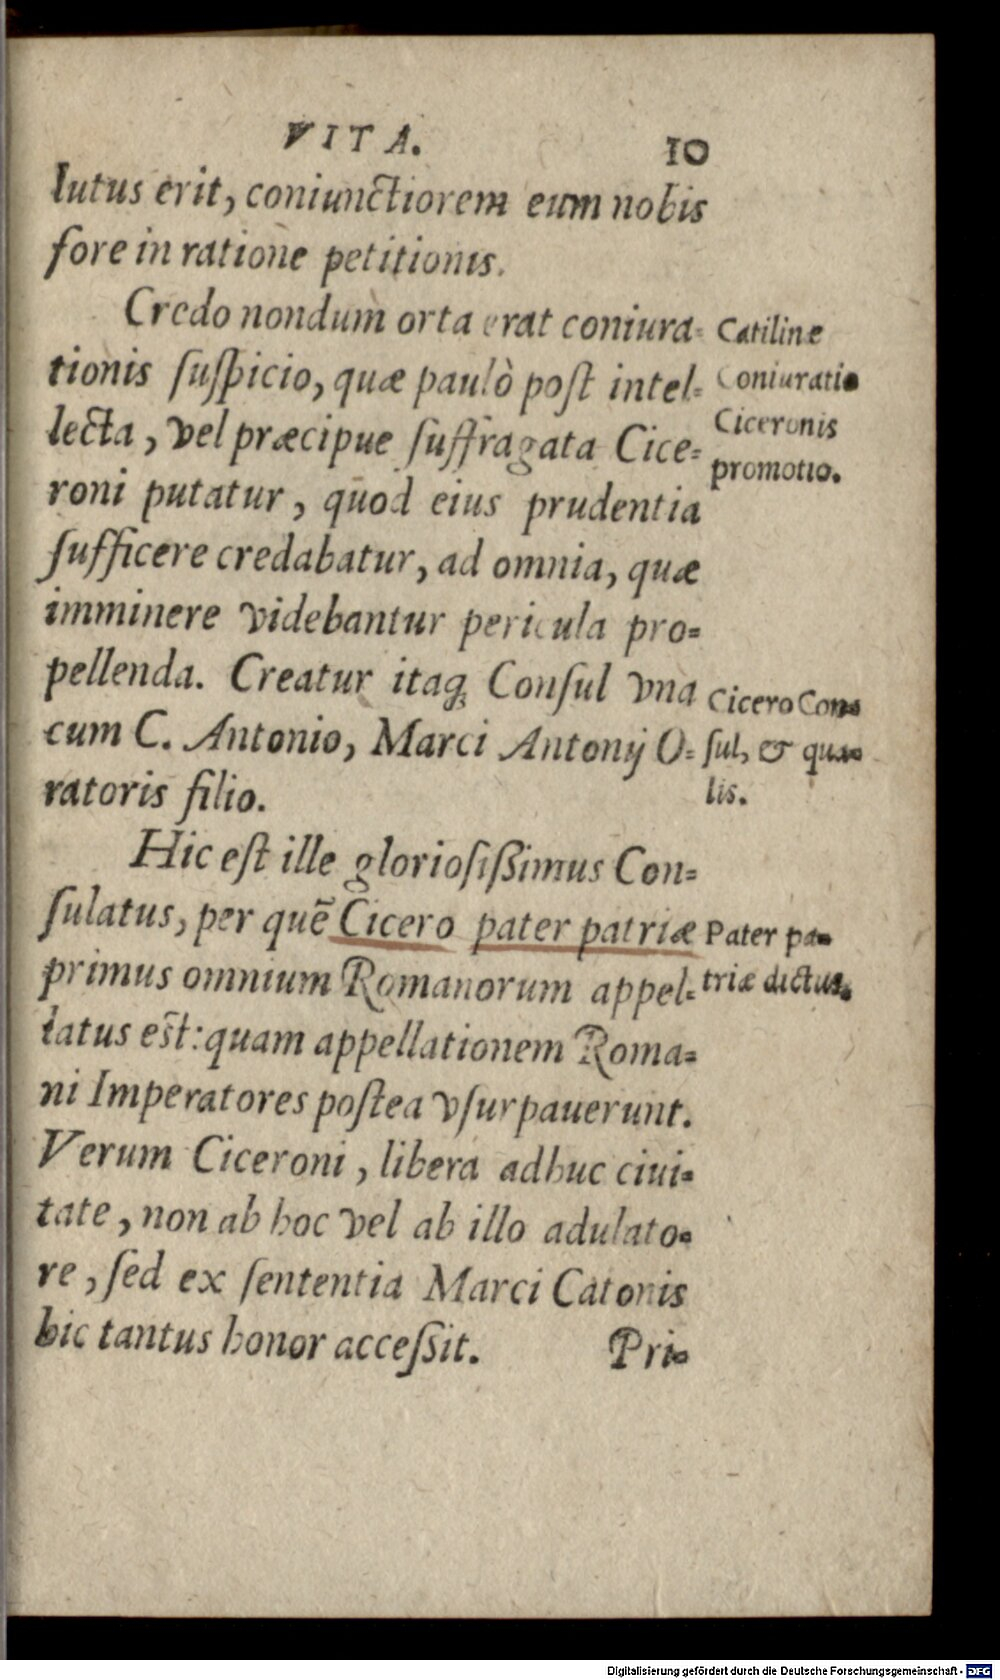 VITA.
10
lutus erit, coniunctiorem eum nobis
fore in ratione petitionis.
Credo nondum orta erat coniura-
tionis ſuſpicio, quæ paulò poſt intel-
lecta, vel præcipue ſuffragata Cice-
roni putatur, quod eius prudentia
ſufficere credabatur, ad omnia, quæ
imminere videbantur pericula pro-
pellenda. Creatur itaq; Conſul vna
cum C. Antonio, Marci Antonij O-
ratoris filio.
Hic eſt ille glorioſiſſimus Con-
ſulatus, per quē Cicero pater patriæ
primus omnium Romanorum appel-
latus eſt: quam appellationem Roma-
ni Imperatores poſtea vſurpauerunt.
Verum Ciceroni, libera adhuc ciui-
tate, non ab hoc vel ab illo adulato-
re, ſed ex ſententia Marci Catonis
hic tantus honor acceſſit.
Pri-
Catilinæ
Coniuratio
Ciceronis
promotio.
Cicero Con-
ſul, & qua-
lis.
Pater pa-
triæ dictus.
Digitalisierung gefördert durch die Deutsche Forschungsgemeinschaft - DFG